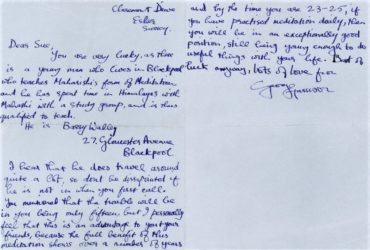 Claremont Drive
Esher
Surrey.
Dear Sue,
You are very lucky, as there
is a young man who lives in Blackpool
who teaches Maharishi's form of Meditation
and he has spent time in Himalayas with
Maharishi with a study group, and is thus
qualified to teach.
He is Barry
27, Gloucester Avenue
Blackpool
I hear that he does travel around
quite a lot, so don't be dissipated if
he is not in when you first call.
You mentioned that the trouble will be
in you being only fifteen, but I personally
feel that this is an advantage to you + your
friends, because the full benefit of this
meditation shows over a number of years
and by the time you are 23-25, if
you have practised meditation daily, then
you will be in an exceptionally good
position, still being young enough to do
useful things with your life. Best of
luck anyway, lots of love from
George Harrison